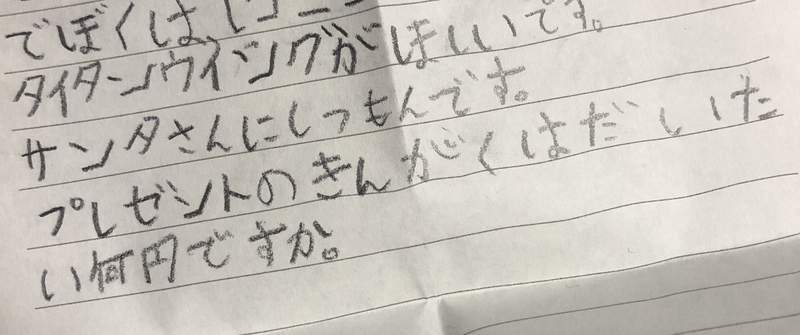 でぼくは、レゴニ
タイターンウイングがほしいです。
サンタさんにしつもんです。
プレゼントのきんがくはだいた
い何円ですか。